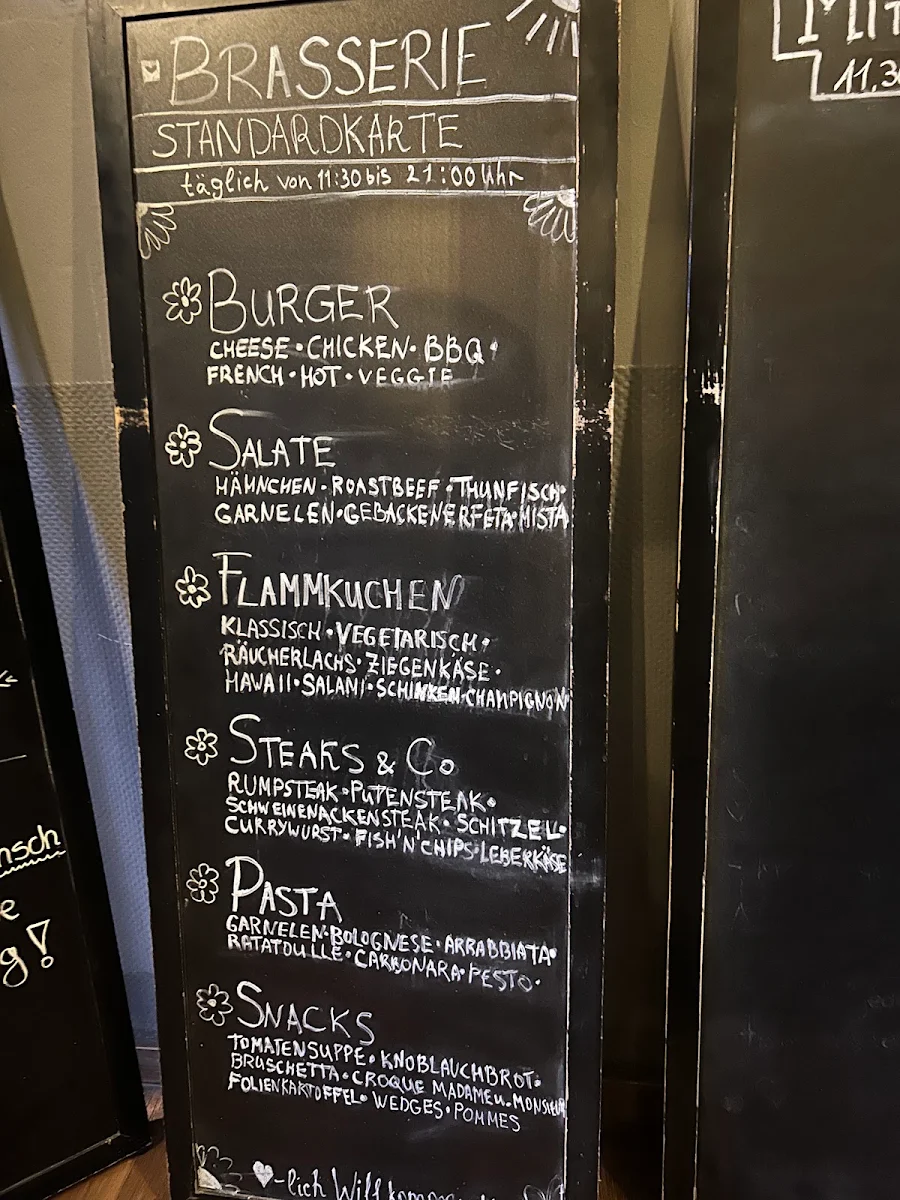 BRASSERIE
STANDARDKARTE
täglich von 11:30 bis 21:00 Uhr
BURGER
CHEESE • CHICKEN • BBQ •
FRENCH • HOT • VEGGIE
SALATE
HÄHNCHEN • ROASTBEEF • THUNFISCH •
GARNELEN • GEBACKENER FETA • MISTA
FLAMMKUCHEN
KLASSISCH • VEGETARISCH •
RÄUCHERLACHS • ZIEGENKÄSE •
HAWAII • SALAMI • SCHINKEN • CHAMPIGNON
STEAKS & CO
RUMPSTEAK • PUTENSTEAK •
SCHWEINENACKENSTEAK • SCHITZEL •
CURRYWURST • FISH'N'CHIPS • LEBERKÄSE
PASTA
GARNELEN • BOLOGNESE • ARRABBIATA •
RATATOUILLE • CARBONARA • PESTO •
SNACKS
TOMATENSUPPE • KNOBLAUCHBROT •
BRUSCHETTA • CROQUE MADAME u. MONSIEUR
FOLIENKARTOFFEL • WEDGES • POMMES
-lich Willkommen
11.30